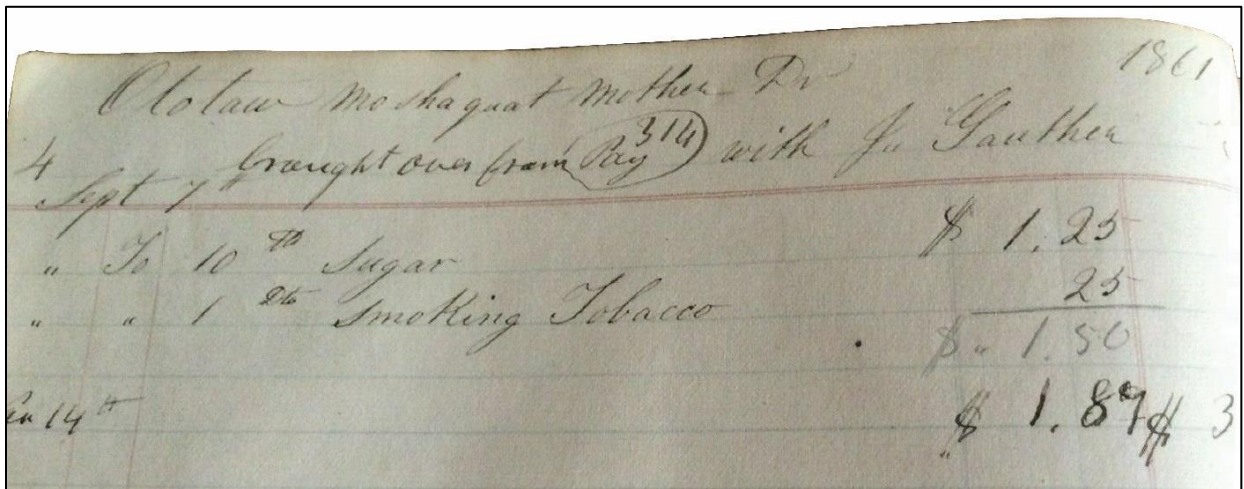 1861
Ototaw Moshaquat Mother Dr
4 brought over from Pay 314 with Jn Gauthier
Sept 7th
" To 10 lb Sugar $ 1.25
" " 1 Dto Smoking Tobacco 25
$ " 1.50
14th $ 1.87 $ 3